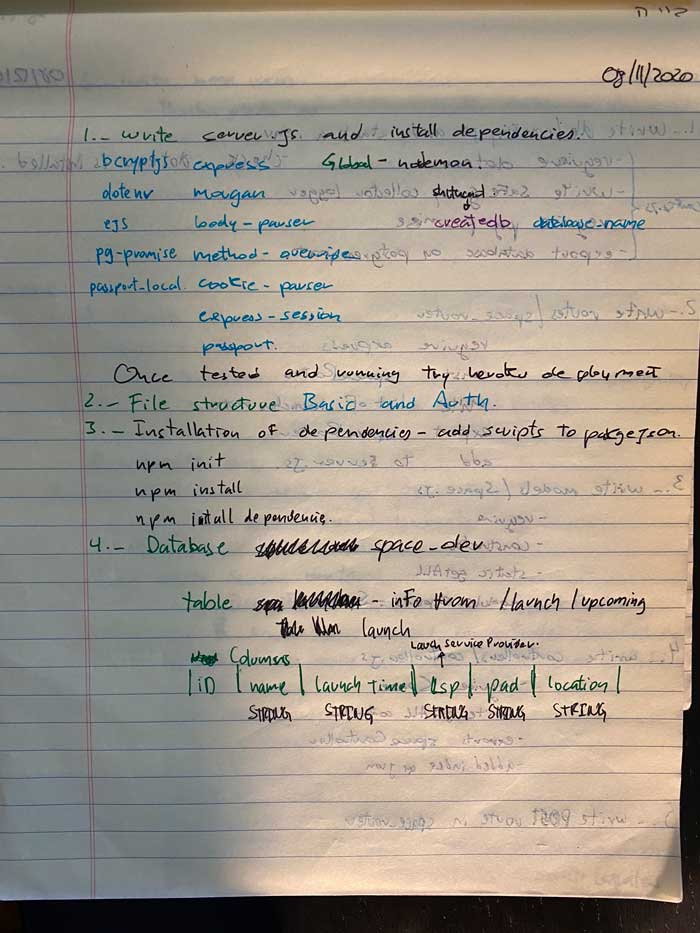 08/11/2020
1.- write server.js and install dependencies.
bcryptjs express Global - nodemon.
dotenv morgan shortcut
ejs body-parser createdb database-name
pg-promise method-override
passport-local cookie-parser
express-session
passport.
Once tested and running try heroku deployment
2.- File structure Basic and Auth.
3.- Installation of dependencies - add scripts to
npm init
npm install
npm intall dependencies.
4.- Database space_dev
table - info from /launch/upcoming
launch
Launch Service Provider.
Columns
| iD | name | launch time | lsp | pad | location |
STRING STRING STRING STRING STRING